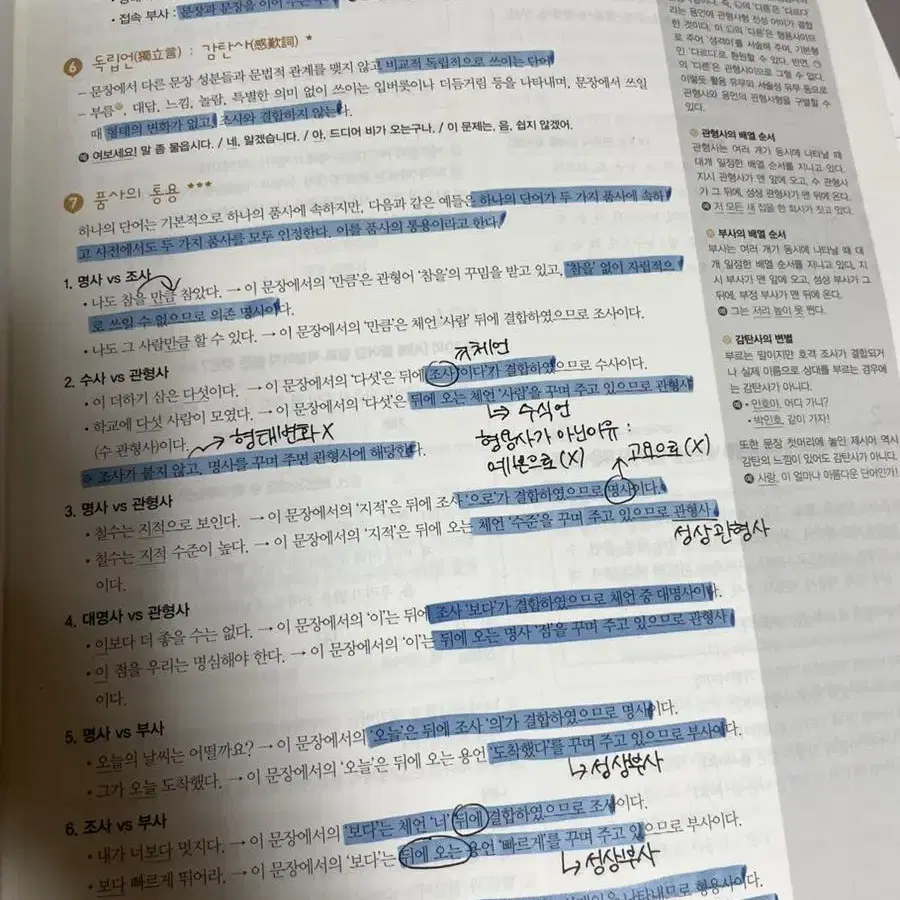 • 접속 부사 : 문장과 문장을 이어 주는 부
6 독립언(獨立言) : 감탄사(感歎詞) *
– 문장에서 다른 문장 성분들과 문법적 관계를 맺지 않고 비교적 독립적으로 쓰이는 단어
– 부름, 대답, 느낌, 놀람, 특별한 의미 없이 쓰이는 입버릇이나 더듬거림 등을 나타내며, 문장에서 쓰일
때 형태의 변화가 없고, 조사와 결합하지 않는다.
예 여보세요! 말 좀 물읍시다. / 네, 알겠습니다. / 아, 드디어 비가 오는구나. / 이 문제는, 음, 쉽지 않겠어.
7 품사의 통용 ***
하나의 단어는 기본적으로 하나의 품사에 속하지만, 다음과 같은 예들은 하나의 단어가 두 가지 품사에 속하
고 사전에서도 두 가지 품사를 모두 인정한다. 이를 품사의 통용이라고 한다.
1. 명사 vs 조사
• 나도 참을 만큼 참았다. → 이 문장에서의 '만큼'은 관형어 '참을'의 꾸밈을 받고 있고, '참을' 없이 자립적으
로 쓰일 수 없으므로 의존 명사이다.
• 나도 그 사람만큼 할 수 있다. → 이 문장에서의 '만큼'은 체언 '사람' 뒤에 결합하였으므로 조사이다.
↗체언
2. 수사 vs 관형사
• 이 더하기 삼은 다섯이다. → 이 문장에서의 '다섯'은 뒤에 조사 '이다'가 결합하였으므로 수사이다.
• 학교에 다섯 사람이 모였다. → 이 문장에서의 '다섯'은 뒤에 오는 체언 '사람'을 꾸며 주고 있으므로 관형사
(수 관형사)이다.
↳ 수식언
형태변화 X
형용사가 아닌이유 :
예쁜으로(X)
고요으로(X)
※ 조사가 붙지 않고, 명사를 꾸며 주면 관형사에 해당한다.
3. 명사 vs 관형사
• 철수는 지적으로 보인다. → 이 문장에서의 '지적'은 뒤에 조사 '으로'가 결합하였으므로 명사이다.
• 철수는 지적 수준이 높다. → 이 문장에서의 '지적'은 뒤에 오는 체언 '수준'을 꾸며 주고 있으므로 관형사
이다.
성상관형사
4. 대명사 vs 관형사
• 이보다 더 좋을 수는 없다. → 이 문장에서의 '이'는 뒤에 조사 '보다'가 결합하였으므로 체언 중 대명사이다.
• 이 점을 우리는 명심해야 한다. → 이 문장에서의 '이'는 뒤에 오는 명사 '점'을 꾸며 주고 있으므로 관형사
이다.
5. 명사 vs 부사
• 오늘의 날씨는 어떨까요? → 이 문장에서의 '오늘'은 뒤에 조사 '의'가 결합하였으므로 명사이다.
• 그가 오늘 도착했다. → 이 문장에서의 '오늘'은 뒤에 오는 용언 '도착했다'를 꾸며 주고 있으므로 부사이다.
↳ 성상부사
6. 조사 vs 부사
• 내가 너보다 멋지다. → 이 문장에서의 '보다'는 체언 '너' 뒤에 결합하였으므로 조사이다.
• 보다 빠르게 뛰어라. → 이 문장에서의 '보다'는 뒤에 오는 용언 '빠르게'를 꾸며 주고 있으므로 부사이다.
↳ 성상부사
나타내므로 형용사이다.
라는 용언에 관형사형 전성 어미가 결합
한 것이다.
로 주어 '성격이'를 서술해 주며, 기본형
인 '다르다'로 환원할 수 있다. 반면, ㉠
의 '다른'은 관형사이므로 그럴 수 없다.
이렇듯 활용 유무와 서술성 유무 등으로
관형사와 용언의 관형사형을 구별할 수
있다.
관형사의 배열 순서
관형사는 여러 개가 동시에 나타날 때
대개 일정한 배열 순서를 지니고 있다.
지시 관형사가 맨 앞에 오고, 수 관형사
가 그 뒤에, 성상 관형사가 맨 뒤에 온다.
예 저 모든 새 집을 한 회사가 짓고 있다.
부사의 배열 순서
부사는 여러 개가 동시에 나타날 때 대
개 일정한 배열 순서를 지니고 있다. 지
시 부사가 맨 앞에 오고, 성상 부사가 그
뒤에, 부정 부사가 맨 뒤에 온다.
예 그는 저리 높이 못 뛴다.
감탄사의 변별
부르는 말이지만 호격 조사가 결합되거
나 실제 이름으로 상대를 부르는 경우에
는 감탄사가 아니다.
예 • 인호야, 어디 가니?
• 박인호, 같이 가자!
또한 문장 첫머리에 놓인 제시어 역시
감탄의 느낌이 있어도 감탄사가 아니다.
예 사랑, 이 얼마나 아름다운 단어인가!